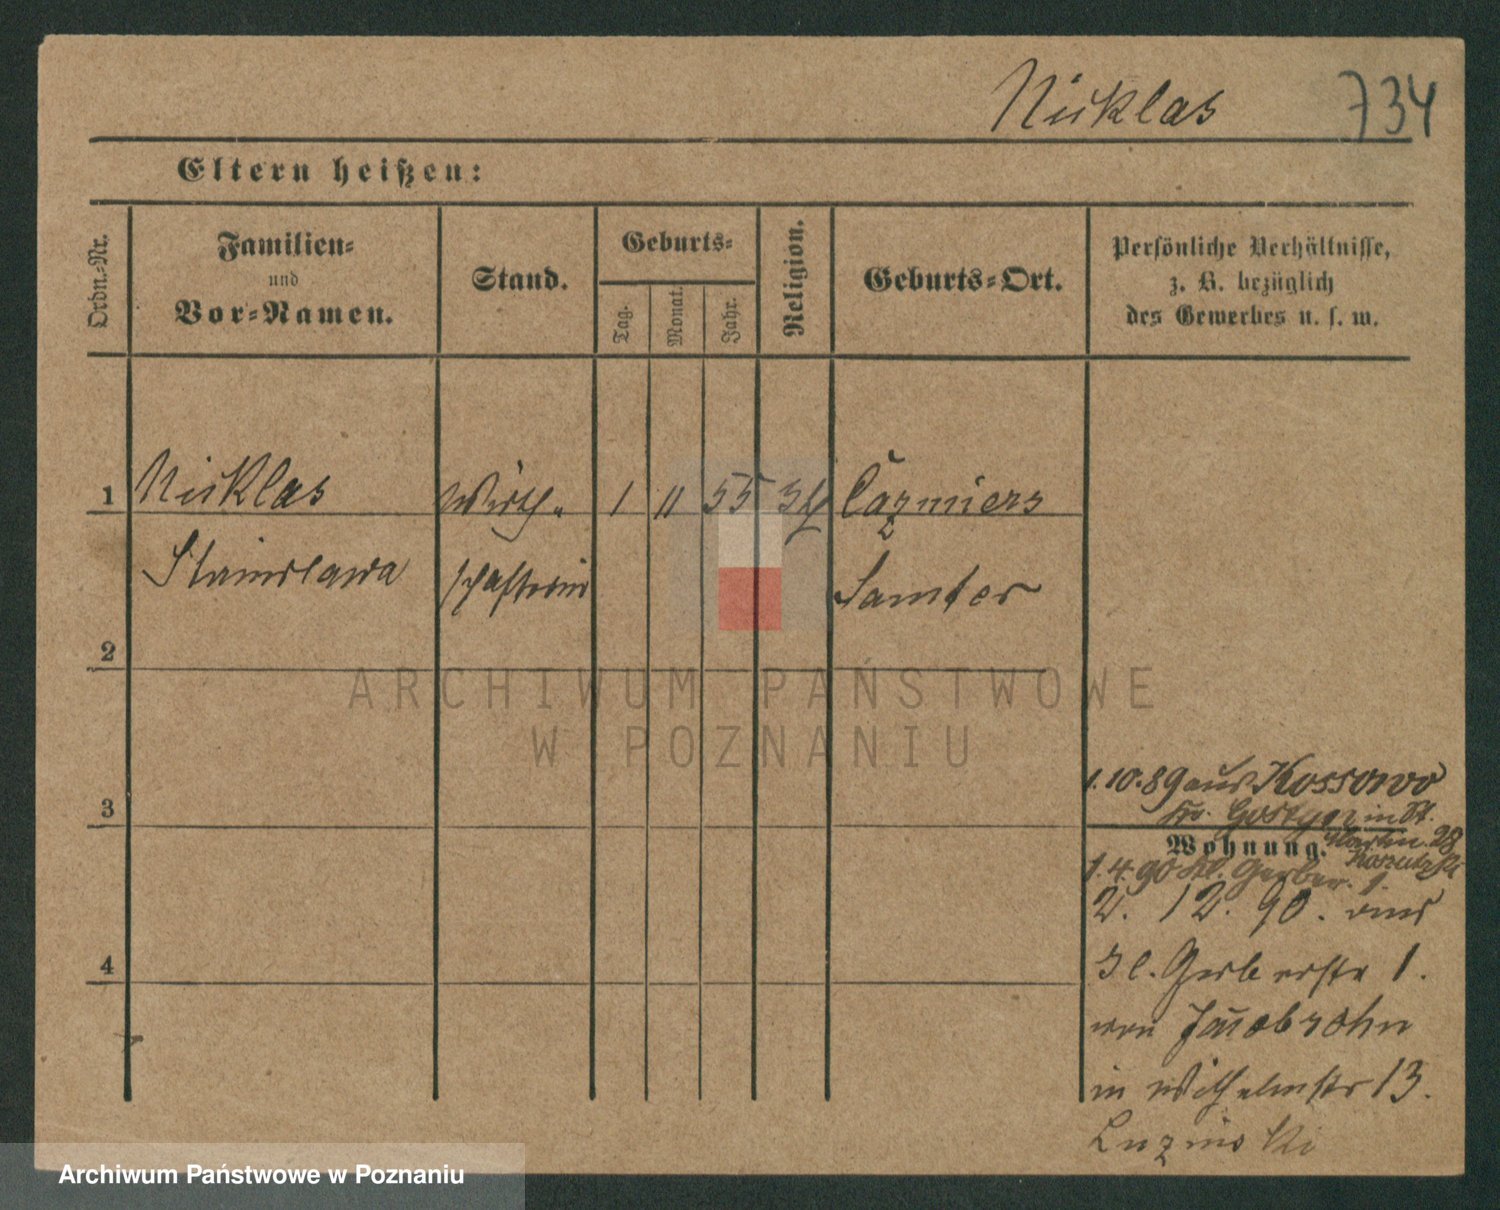 Nicklas 734
Eltern heißen:
Ordn.-Nr.
Familien-
und
Vor-Namen.
Stand.
Geburts-
Tag.
Monat.
Jahr.
Religion.
Geburts-Ort.
Persönliche Verhältnisse,
z. B. bezüglich
des Gewerbes u. s. w.
1 Nicklas Wirth- 1 11 55 Cazmierz
Stanislawa schafterin Samter
2
3
4
1.10.89 aus Kossowo
Kr. Gostyn in St.
Martin. 28
Wohnung.
1.4.90 Kl. Gerber. 1.
2. 12. 90. aus
Kl. Gerberstr 1.
von Jacobsohn
in Wilhelmstr 13.
Luzinski
ARCHIWUM PAŃSTWOWE
W POZNANIU
Archiwum Państwowe w Poznaniu